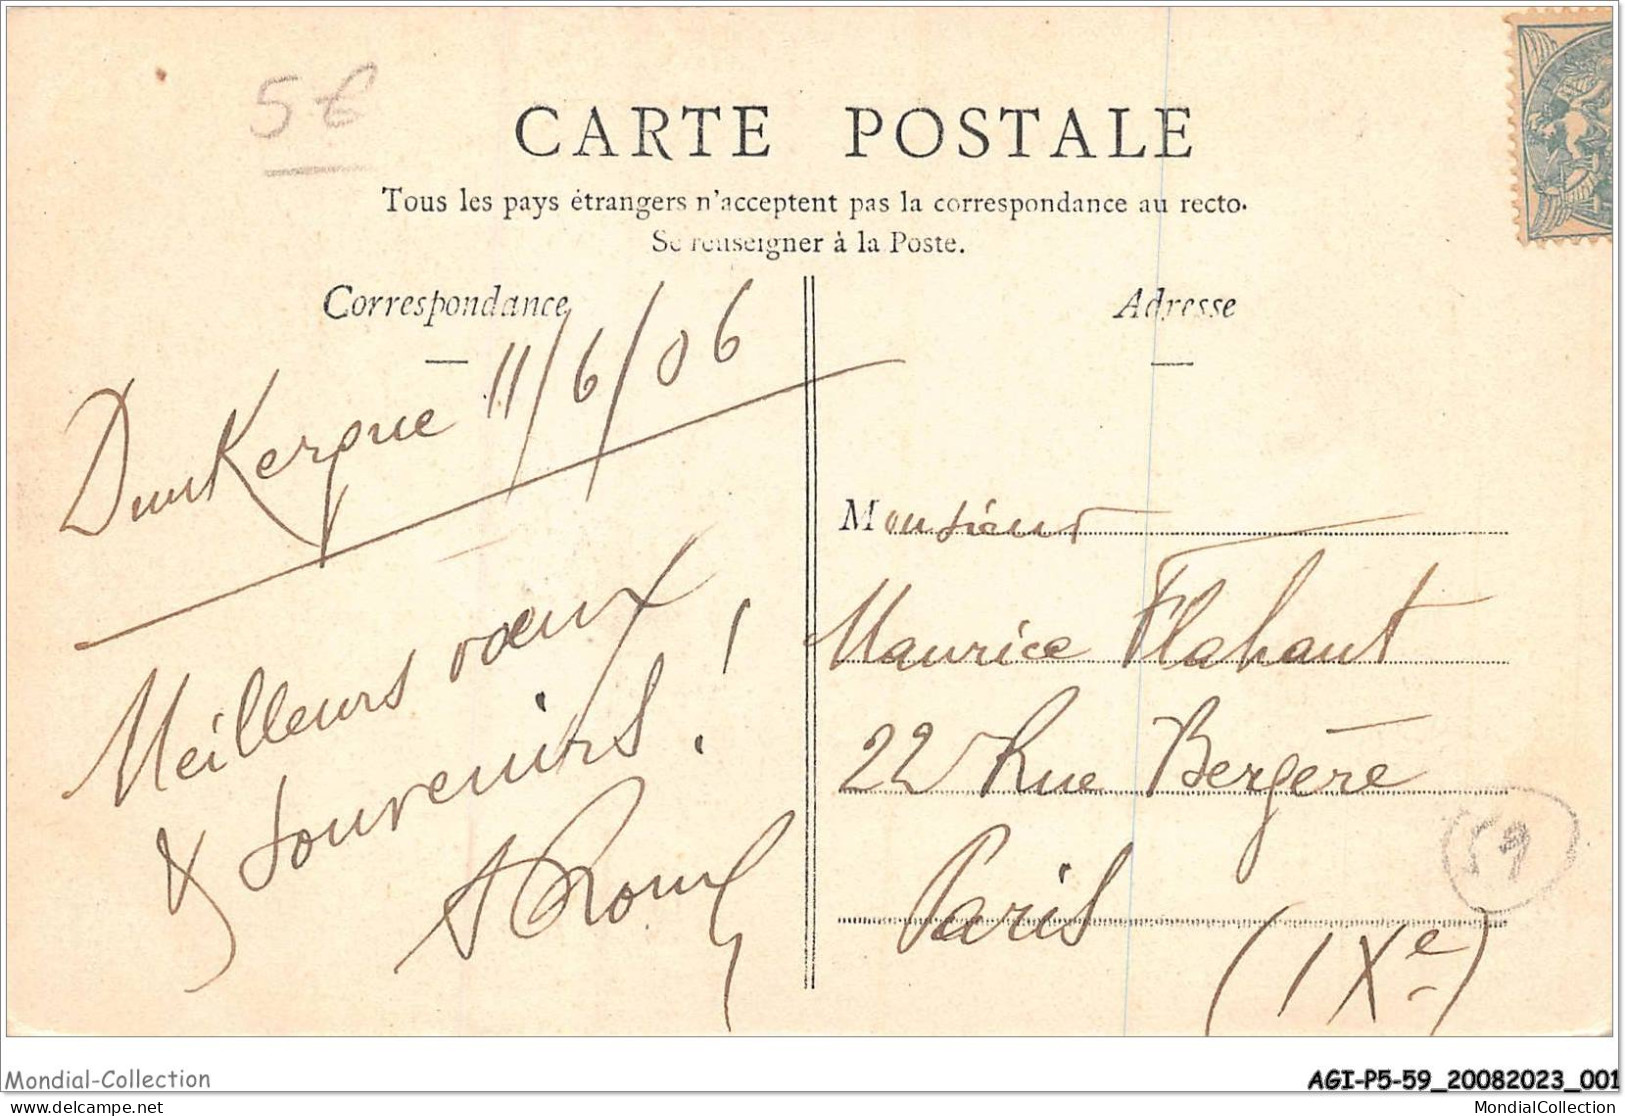 5€
CARTE POSTALE
Tous les pays étrangers n'acceptent pas la correspondance au recto.
Se renseigner à la Poste.
Correspondance
Dunkerque 11/6/06
Meilleurs vœux
& souvenirs !
Adresse
Monsieur
Maurice Flahaut
22 Rue Bergère
Paris
(IXe)
59
Mondial-Collection
AGI-P5-59_20082023_001
delcampe.net
MondialCollection